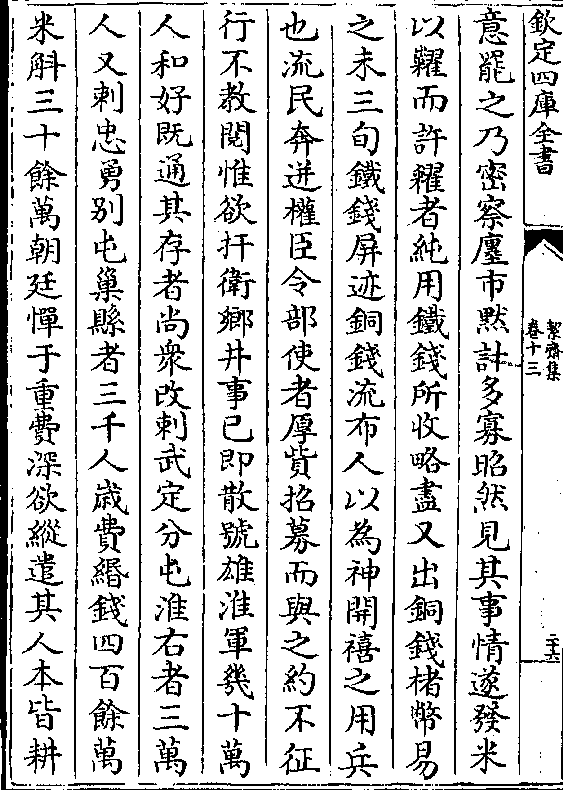 欽定四庫全書
絜齋集
卷十三
二十六
意罷之乃密察廛市黙計多寡昭然見其事情遂發米
以糶而許糴者純用鐵錢所收略盡又出銅錢楮幣易
之未三旬鐵錢屏迹銅錢流布人以為神開禧之用兵
也流民奔迸權臣令部使者厚貲招募而與之約不征
行不教閲惟欲扞衛鄉井事已即散號雄淮軍幾十萬
人和好既通其存者尚衆改刺武定分屯淮右者三萬
人又刺忠勇别屯巢縣者三千人歳費緡錢四百餘萬
米斛三十餘萬朝廷憚于重費深欲縱遣其人本皆耕